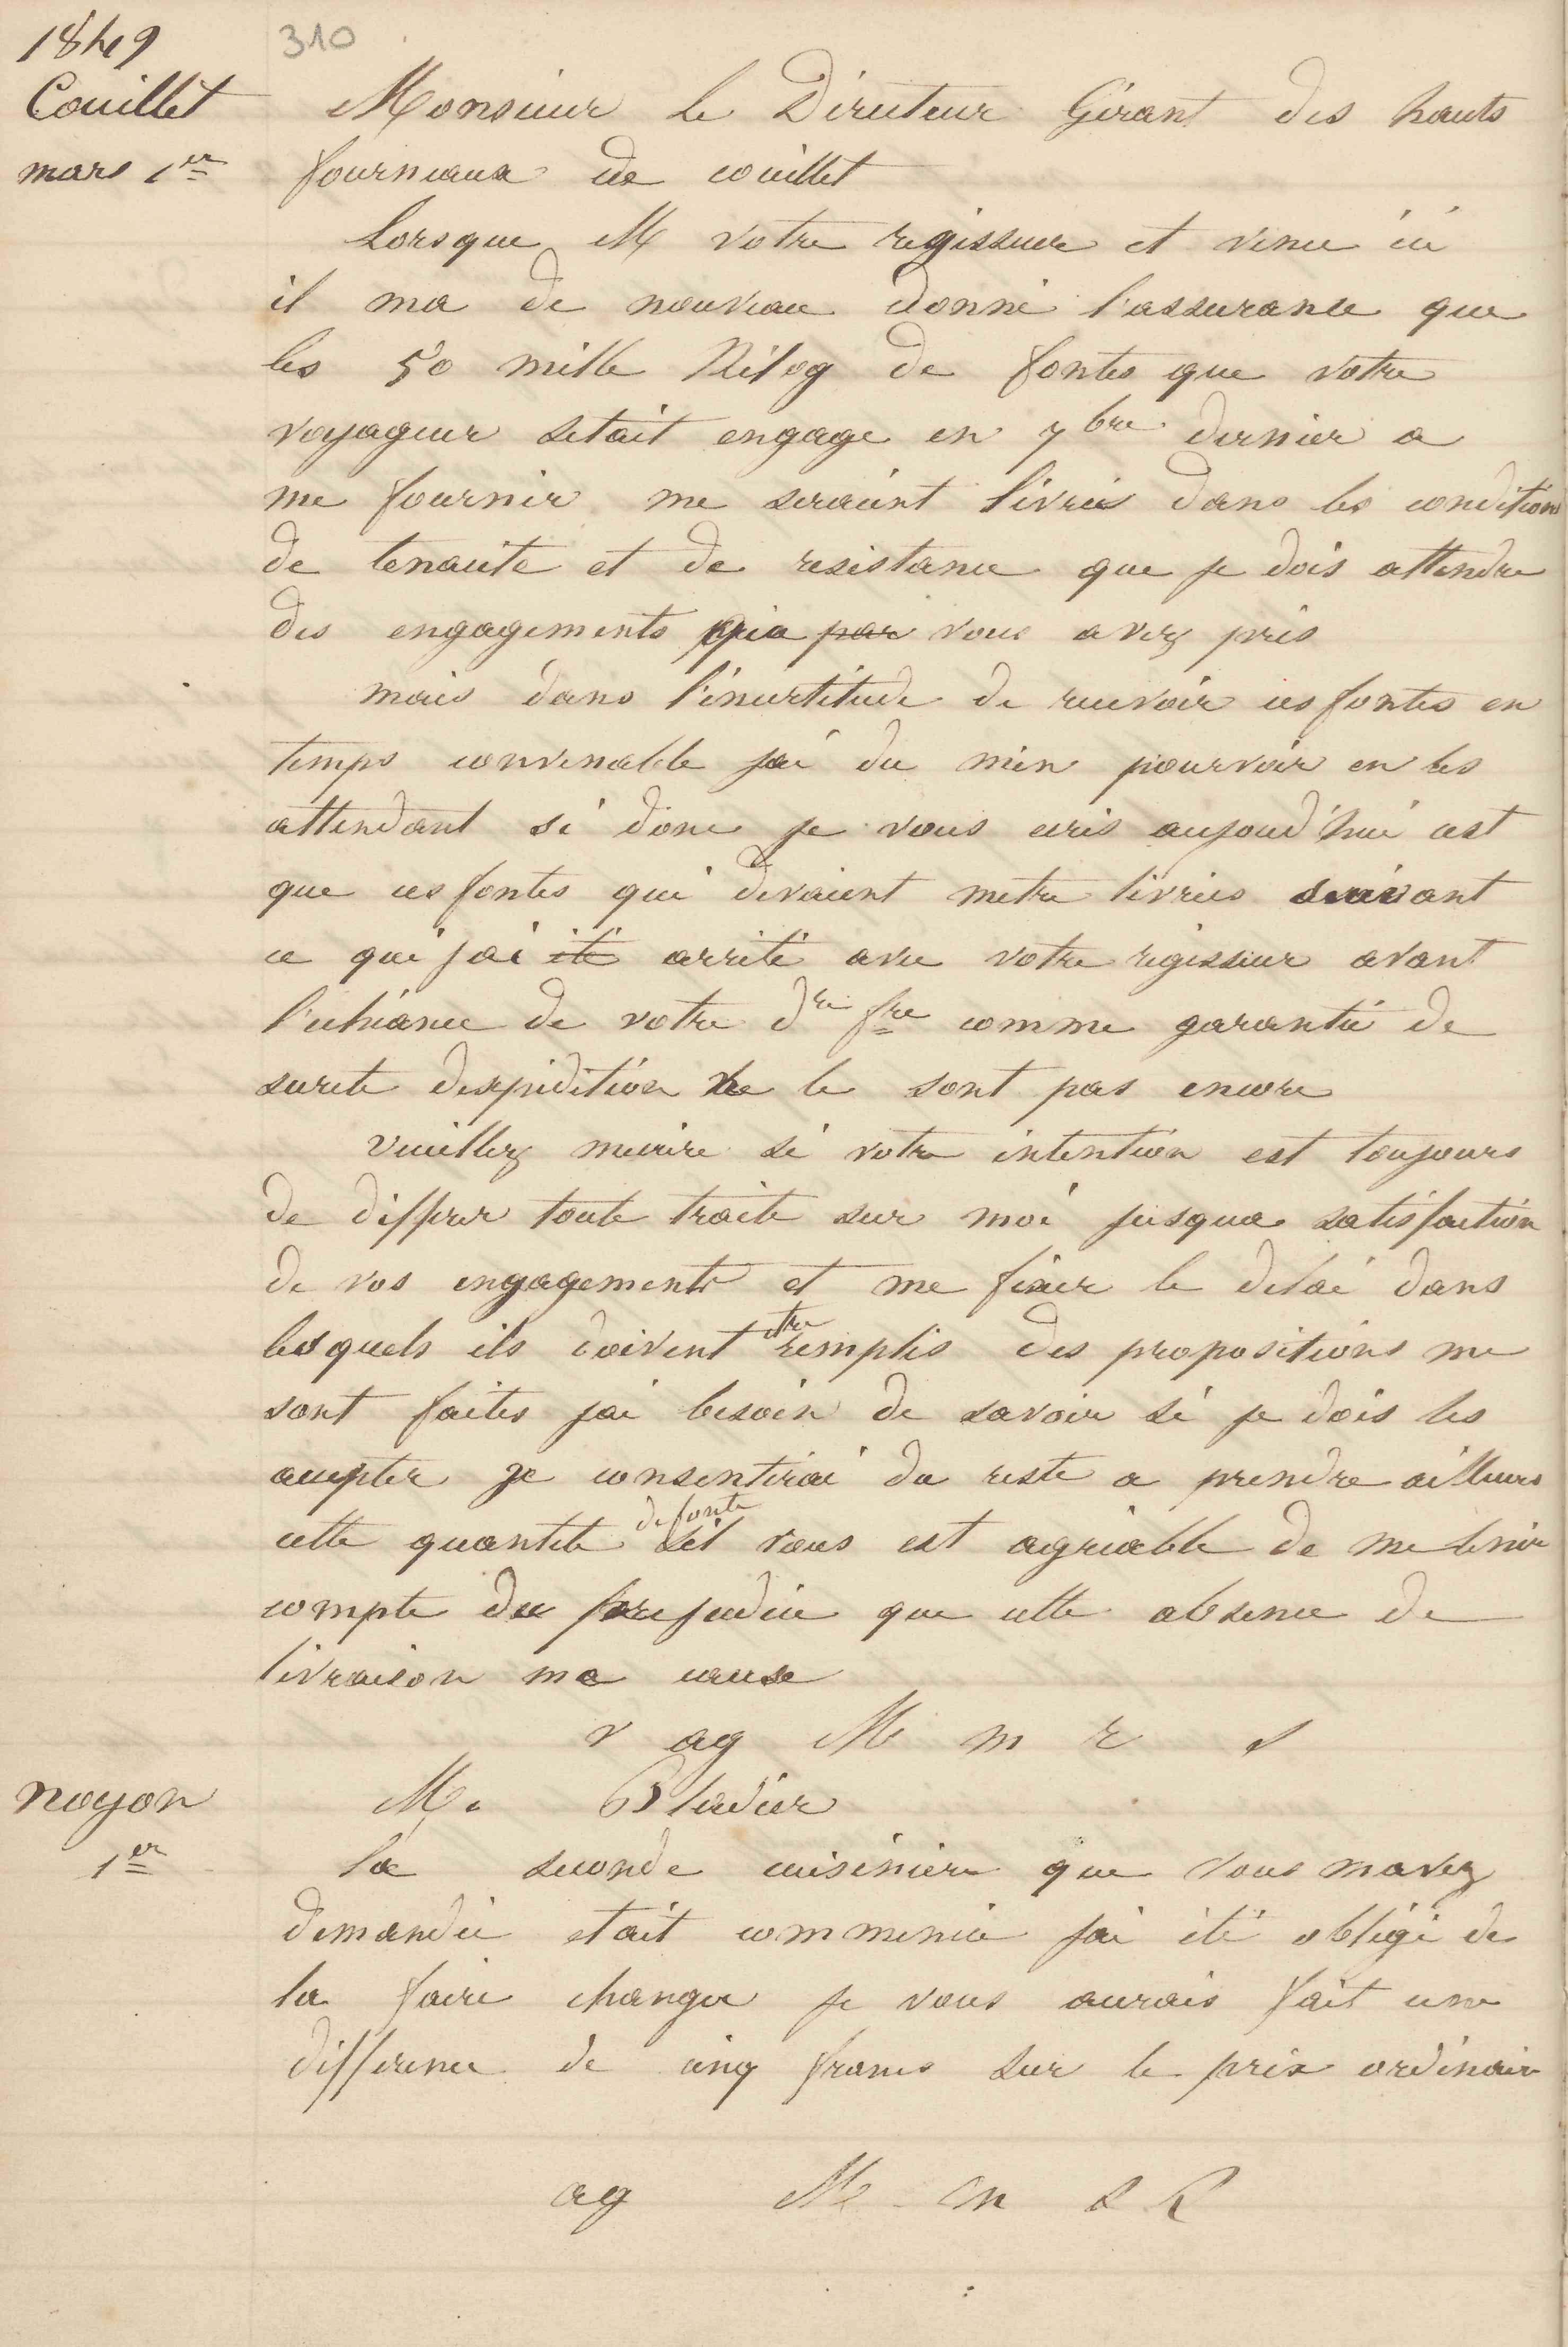 310
1849
Couillet
mars 1er
Monsieur le Directeur Gérant des hauts
fourneaux de couillet
Lorsque M votre regisseur et venu ici
il ma de nouveau donné l'assurance que
les 50 mille Kilog de fontes que votre
voyageur setait engage en 7bre dernier a
me fournir me seraient livrés dans les conditions
de tenacite et de resistance que je dois attendre
des engagements que par vous avez pris
mais dans l'incertitude de recevoir ces fontes en
temps convenable jai du men pourvoir en les
attendant si donc je vous ecris aujourd'hui cest
que ces fontes qui devaient metre livrées suivant
ce que jai été arrêté avec votre regisseur avant
l'echéance de votre dre fre comme garantie de
surete dexpedition ne le sont pas encore
veuillez mecrire si votre intention est toujours
de differer toute traite sur moi jusqua satisfaction
de vos engagements et me fixer le delai dans
lesquels ils doivent etre remplis des propositions me
sont faites jai besoin de savoir si je dois les
accepter je consentirai du reste a prendre ailleurs
cette quantite de fonte sil vous est agreable de me tenir
compte du prejudice que cette absence de
livraison ma cause
v ag M m r s
noyon
1er
Mr Bladier
la seconde cuisiniere que vous mavez
demandée etait commencée jai été obligé de
la faire changer je vous aurais fait une
difference de cinq francs sur le prix ordinaire
ag M m s R